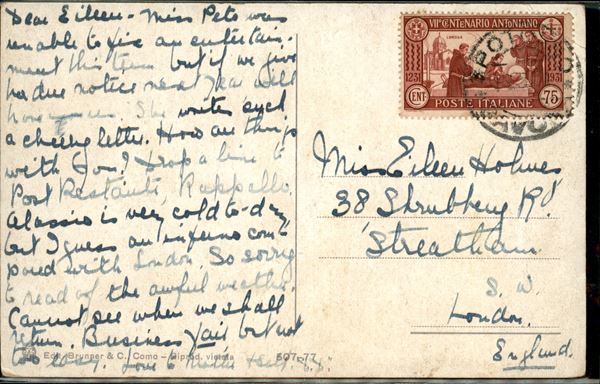 Dear Eileen - Miss Peto was
unable to fix an entertain-
ment this term but if we give
her due notice next year will
honour us. She writes such
a cheery letter. How are things
with you? Drop a line to
Post Restante, Rappello.
Alassio is very cold to-day,
but I guess an inferno com-
pared with London. So sorry
to read of the awful weather.
Cannot see when we shall
return. Business fair but not
too easy. Love to
Ediz. Brunner & C., Como - Riprod. vietata
507-77
VII° CENTENARIO ANTONIANO
1231
1931
CENT.
75
POSTE ITALIANE
Miss Eileen Holmes
38 Shrubbery Rd
Streatham
S. W.
London.
England.